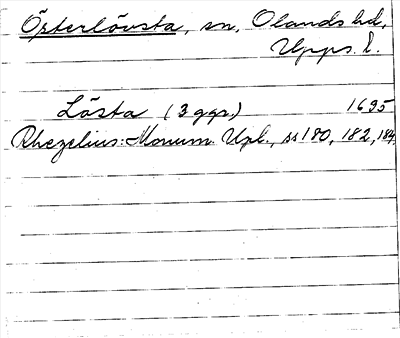 Österlövsta, sn, Olands hd,
Upps. l.
Lösta (3 ggr.) 1695
Rhezelius: Monum. Upl., ss 180, 182, 184.